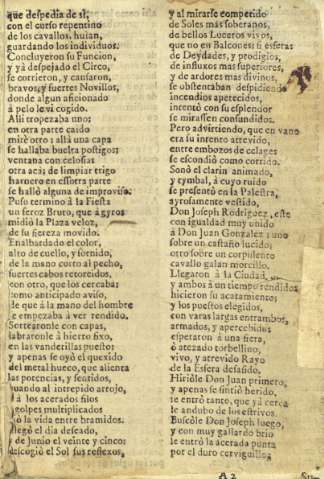 que despedia de sì,
con el curso repentino
de los cavallos, huian,
guardando los individuos.
Concluyeron su Funcion,
y yà despejado el Circo,
se corrieron, y causaron,
bravos, y fuertes Novillos,
donde algun aficionado
à pelo levi copido.
Alli tropezaba uno:
en otra parte caido
mirè otro: allà una capa
se hallaba buelta postigos;
ventana con celosias
otra acà; de limpiar trigo
harnero en essotra parte
se hallò alguna de improviso.
Puso termino à la Fiesta
un feroz Bruto, que à gyros
midiò la Plaza veloz,
de su fiereza movido.
Enalbardado el color,
alto de cuello, y fornido,
de la mano corto al pecho,
fuertes cabos retorcidos,
con otro, que los cercaba:
como anticipado aviso,
de que à la mano del hombre
se empezaba à ver rendido.
Sortearonle con capas,
labraronle à hierro fixo,
en las vanderillas puesto:
y apenas se oyò el quexido
del metal hueco, que alienta
las potencias, y sentidos,
quando al intrepido arrojo,
à los acerados filos
golpes multiplicados
la vida entre bramidos.
llegò el dia deseado,
de Junio el veinte y cinco:
descogió el Sol sus reflexos,
y al mirarse competido
de Soles mas soberanos,
de bellos Luceros vivos,
que no en Balcones: si esferas
de Deydades, y prodigios,
de influxos mas superiores,
y de ardores mas divinos,
se obstentaban despidiendo
incendios apetecidos,
intentò con su esplendor
se mirassen confundidos.
Pero advirtiendo, que en vano
era su intento atrevido,
entre embozos de celages
se escondiò como corrido.
Sonò el clarin animado,
y tymbal, à cuyo ruido
se presentò en la Palestra,
ayrosamente vestido,
Don Joseph Rodriguez, este
con igualdad muy unido
à Don Juan Gonzalez: uno
sobre un castaño lucido;
otro sobre un corpulento
cavallo galan morcillo.
Llegaron à la Ciudad,
y ambos à un tiempo rendidos
hicieron su acatamiento;
y los puestos elegidos,
con varas largas entrambos,
armados, y apercebidos
esperaron à una fiera,
ò atezado torbellino,
vivo, y atrevido Rayo
de la Esfera desasido.
Hiriòle Don Juan primero,
y apenas se sintiò herido,
se entrò tanto, que yà cerca
le anduvo de los estrivos.
Buscòle Don Joseph luego,
y con muy gallardo brio
le entrò la acerada punta
por el duro cerviguillo;
A 2